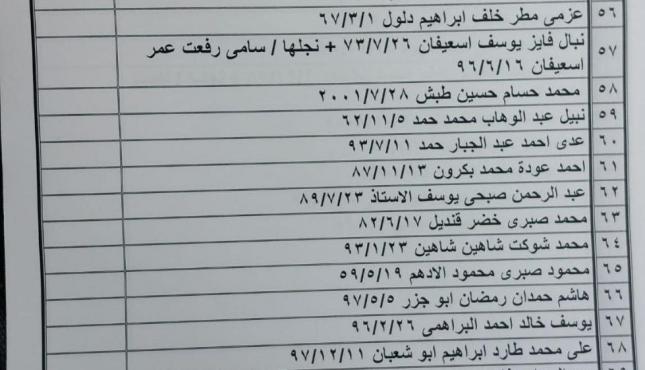 ٥٦ عزمى مطر خلف ابراهيم دلول ٦٧/٣/١
٥٧ نبال فايز يوسف اسعيفان ٧٣/٧/٢٦ + نجلها / سامى رفعت عمر
اسعيفان ٩٦/٦/١٦
٥٨ محمد حسام حسين طبش ٢٠٠١/٧/٢٨
٥٩ نبيل عبد الوهاب محمد حمد ٦٢/١١/٥
٦٠ عدى احمد عبد الجبار حمد ٩٣/٧/١١
٦١ احمد عودة محمد بكرون ٨٧/١١/١٣
٦٢ عبد الرحمن صبحى يوسف الاستاذ ٨٩/٧/٢٣
٦٣ محمد صبرى خضر قنديل ٨٢/٦/١٧
٦٤ محمد شوكت شاهين شاهين ٩٣/١/٢٣
٦٥ محمود صبرى محمود الادهم ٥٩/٥/١٩
٦٦ هاشم حمدان رمضان ابو جزر ٩٧/٥/٥
٦٧ يوسف خالد احمد البراهمى ٩٦/٢/٢٦
٦٨ على محمد طارد ابراهيم ابو شعبان ٩٧/١٢/١١